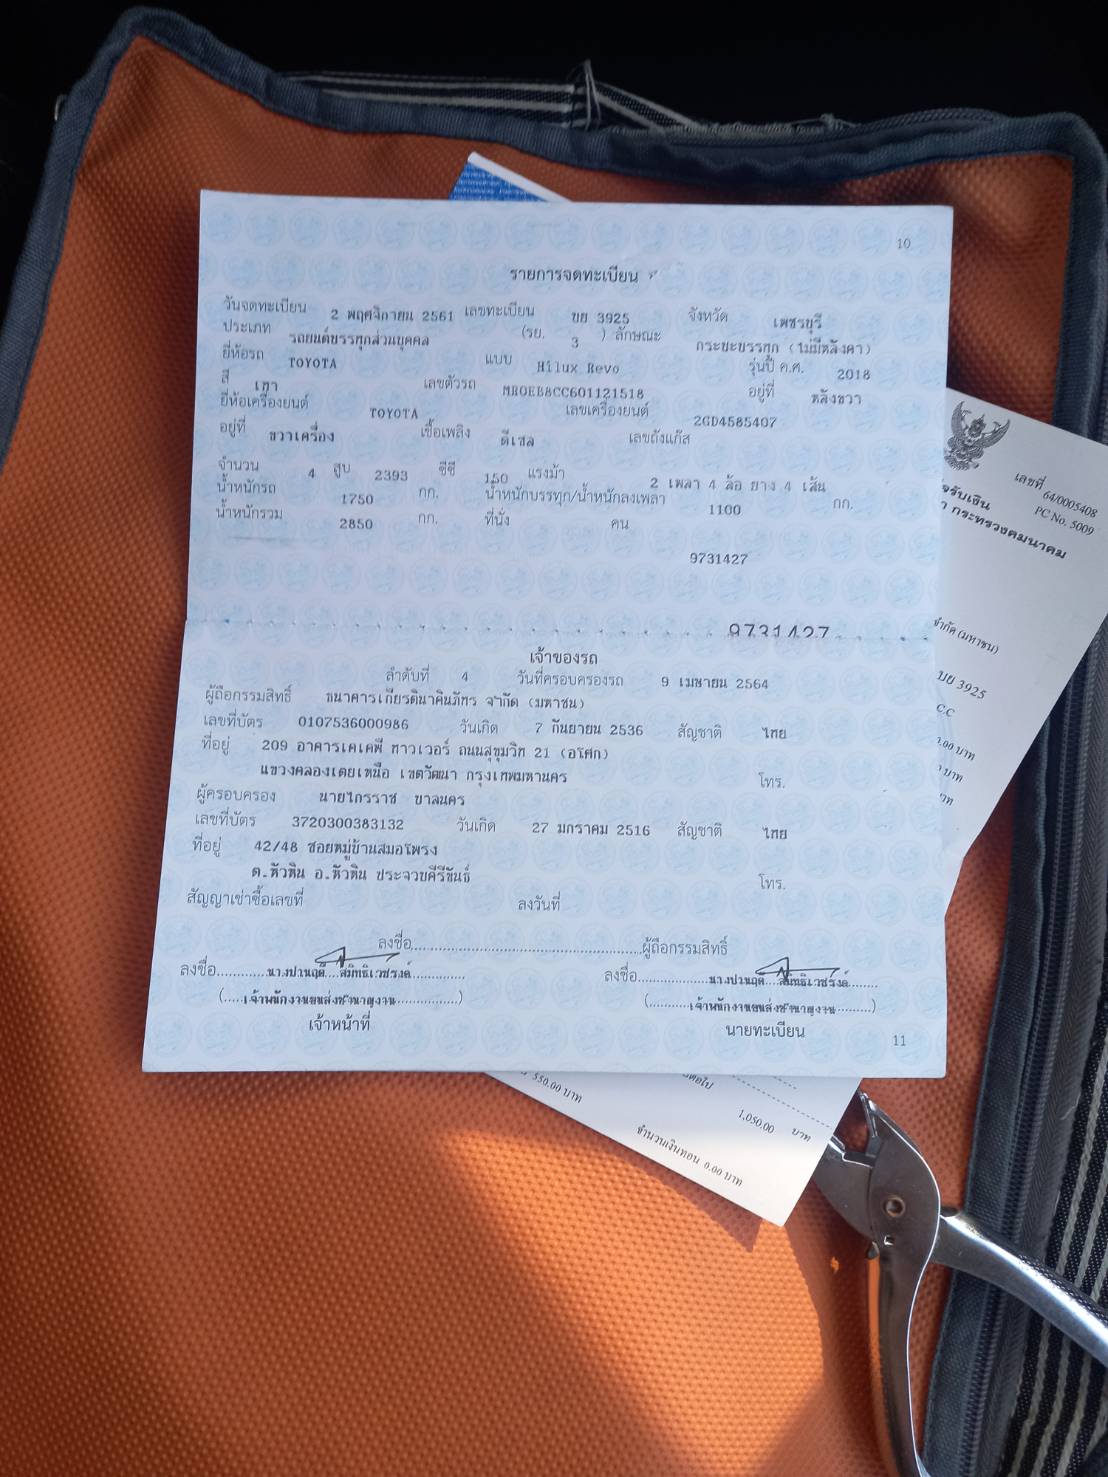 10
รายการจดทะเบียน
วันจดทะเบียน 2 พฤศจิกายน 2561 เลขทะเบียน บย 3925 จังหวัด เพชรบุรี
ประเภท รถยนต์บรรทุกส่วนบุคคล (รย. 3 ) ลักษณะ กระบะบรรทุก (ไม่มีหลังคา)
ยี่ห้อรถ TOYOTA แบบ Hilux Revo รุ่นปี ค.ศ. 2018
สี เทา เลขตัวรถ MR0EB8CC601121518 อยู่ที่ หลังขวา
ยี่ห้อเครื่องยนต์ TOYOTA เลขเครื่องยนต์ 2GD4585407
อยู่ที่ ขวาเครื่อง เชื้อเพลิง ดีเซล เลขถังแก๊ส
จำนวน 4 สูบ 2393 ซีซี 150 แรงม้า 2 เพลา 4 ล้อ ยาง 4 เส้น
น้ำหนักรถ 1750 กก. น้ำหนักบรรทุก/น้ำหนักลงเพลา 1100 กก.
น้ำหนักรวม 2850 กก. ที่นั่ง คน
9731427
9731427
เจ้าของรถ
ลำดับที่ 4 วันที่ครอบครองรถ 9 เมษายน 2564
ผู้ถือกรรมสิทธิ์ ธนาคารเกียรตินาคินภัทร จำกัด (มหาชน)
เลขที่บัตร 0107536000986 วันเกิด 7 กันยายน 2536 สัญชาติ ไทย
ที่อยู่ 209 อาคารเคเคพี ทาวเวอร์ ถนนสุขุมวิท 21 (อโศก)
แขวงคลองเตยเหนือ เขตวัฒนา กรุงเทพมหานคร โทร.
ผู้ครอบครอง นายไกรราช ขาลนคร
เลขที่บัตร 3720300383132 วันเกิด 27 มกราคม 2516 สัญชาติ ไทย
ที่อยู่ 42/48 ซอยหมู่บ้านสมอโพรง
ต.หัวหิน อ.หัวหิน ประจวบคีรีขันธ์ โทร.
สัญญาเช่าซื้อเลขที่ ลงวันที่
ลงชื่อ ผู้ถือกรรมสิทธิ์
ลงชื่อ นางปานฤดี สมิทธิเวชรงค์ ลงชื่อ นางปานฤดี สมิทธิเวชรงค์
(เจ้าพนักงานขนส่งชำนาญงาน) (เจ้าพนักงานขนส่งชำนาญงาน)
เจ้าหน้าที่ นายทะเบียน
11
เลขที่ 64/0005408
PC No. 5009
กระทรวงคมนาคม
จำกัด (มหาชน)
บย 3925
CC
บาท
บาท
550.00 บาท
1,050.00 บาท
จำนวนเงินทอน 0.00 บาท